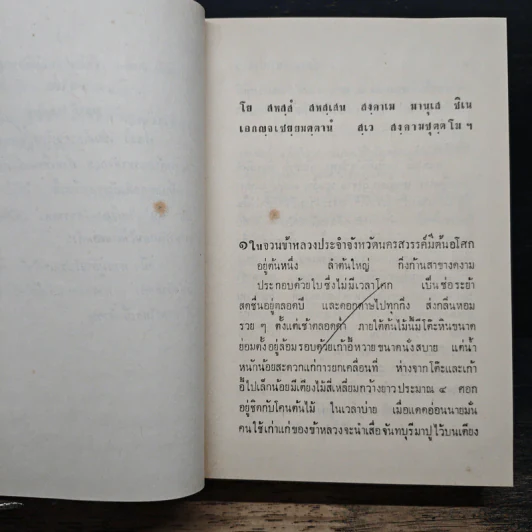 โย สหสฺสํ สหสฺเสน สงฺคาเม มานุเส ชิเน
เอกญฺจ เชยฺยมตฺตานํ ส เว สงฺคามชุตฺตโม ฯ
๑ ในจวนข้าหลวงประจำจังหวัดนครสวรรค์มีต้นอโศก
อยู่ต้นหนึ่ง ลำต้นใหญ่ กิ่งก้านสาขางดงาม
ประกอบด้วยใบซึ่งไม่มีเวลาโศก เป็นช่อระย้า
สดชื่นอยู่ตลอดปี และดอกดาษไปทุกกิ่ง ส่งกลิ่นหอม
รวย ๆ ตั้งแต่เช้าตลอดค่ำ ภายใต้ต้นไม้นี้มีโต๊ะหินขนาด
ย่อมตั้งอยู่ล้อมรอบด้วยเก้าอี้หวายขนาดนั่งสบาย แต่น้ำ
หนักน้อยสะดวกแก่การยกเคลื่อนที่ ห่างจากโต๊ะและเก้า
อี้ไปเล็กน้อยมีเตียงไม้สี่เหลี่ยมกว้างยาวประมาณ ๔ ศอก
อยู่ชิดกับโคนต้นไม้ ในเวลาบ่าย เมื่อแดดอ่อนนายมั่น
คนใช้เก่าแก่ของข้าหลวงจะนำเสื่อจันทบุรีมาปูไว้บนเตียง